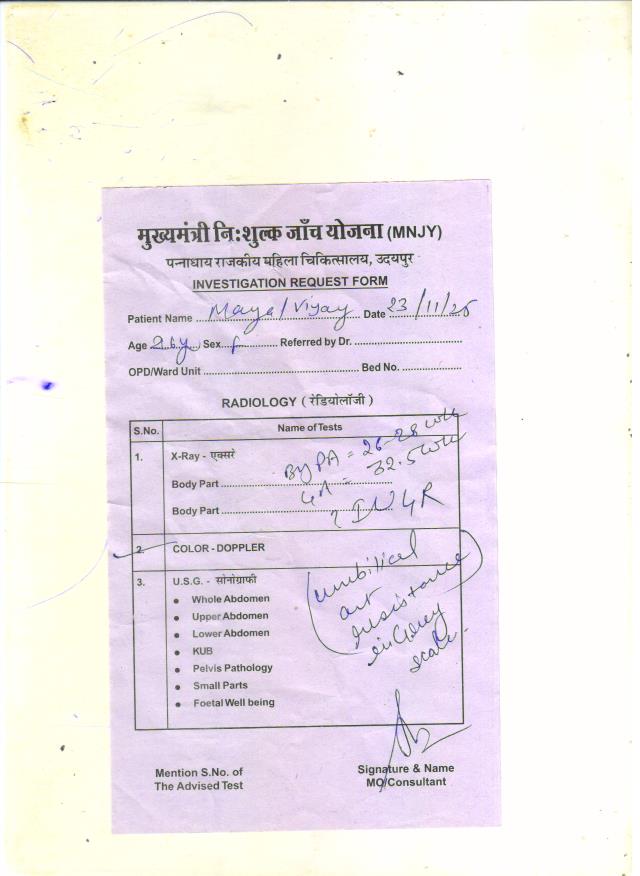 मुख्यमंत्री निःशुल्क जाँच योजना (MNJY)
पन्नाधाय राजकीय महिला चिकित्सालय, उदयपुर
INVESTIGATION REQUEST FORM
Patient Name Maya/Vijay Date 23/11/25
Age 26y Sex f Referred by Dr.
OPD/Ward Unit Bed No.
RADIOLOGY ( रेडियोलॉजी )
S.No. Name of Tests
1. X-Ray - एक्सरे By PA = 26-28 wk
Body Part GA = 32.5 wk
Body Part ? IUGR
2. COLOR - DOPPLER
3. U.S.G. - सोनोग्राफी (umbilical
Whole Abdomen art
Upper Abdomen resistance
Lower Abdomen in Grey
KUB scale.
Pelvis Pathology
Small Parts
Foetal Well being
Mention S.No. of
The Advised Test
Signature & Name
MO/Consultant